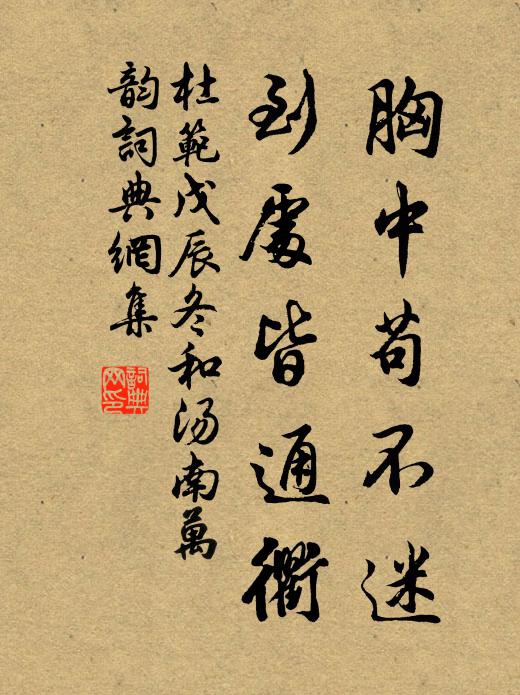 胸中苟不迷
到處皆通衢
杜範戊辰冬和湯南萬
韵詞典網集
詞典网印